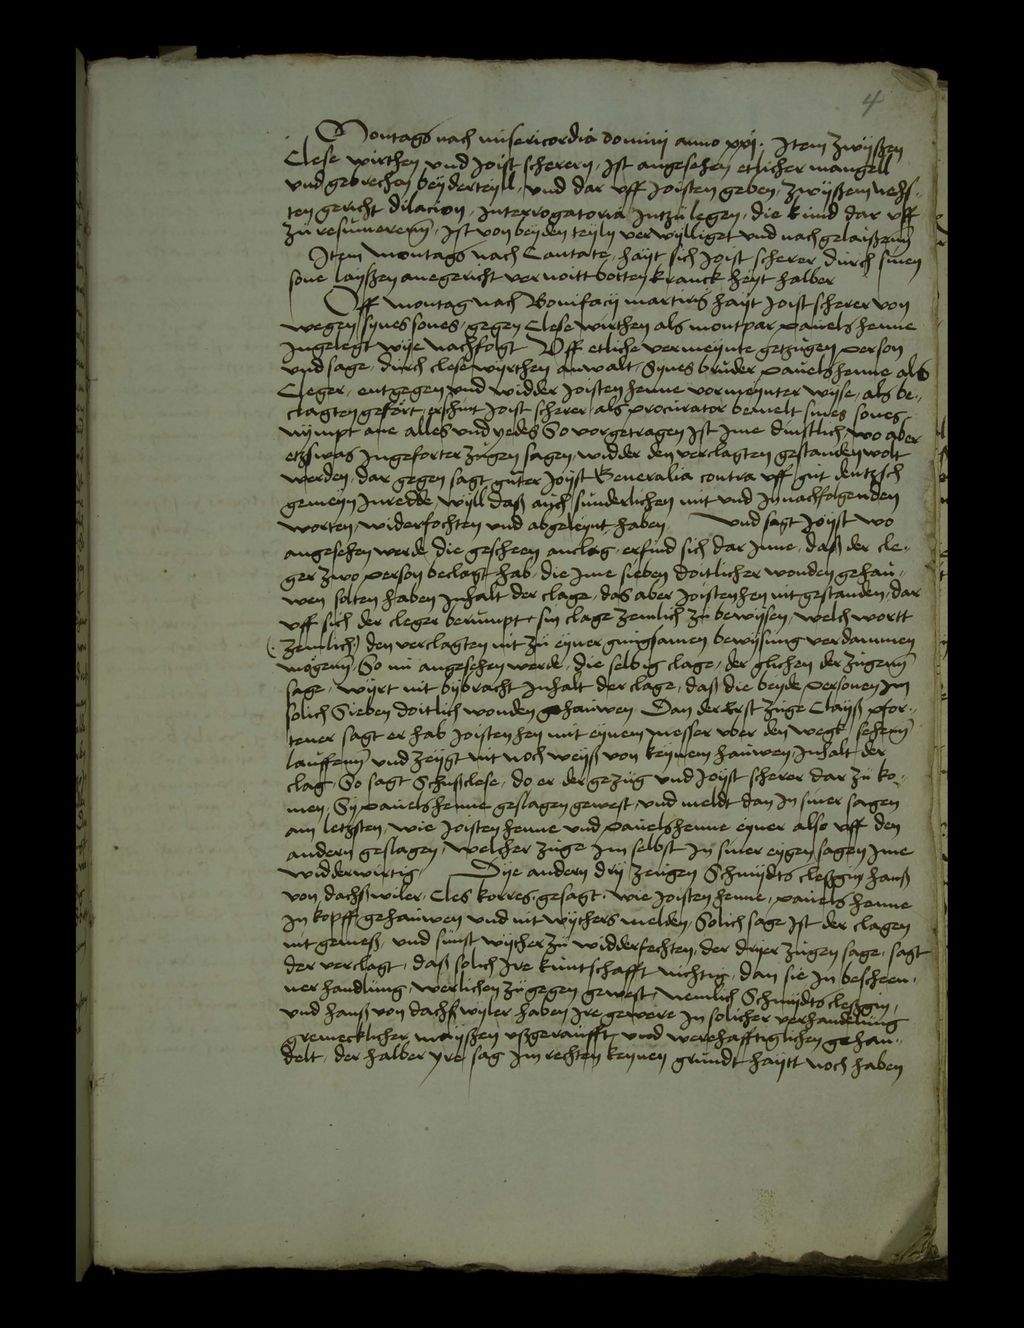 4
Montags nach misericordia domini anno xxj. Item zwyssen
Clese wirthen und Joist scherern, ist angesehen etlicher mangell
und gebrechen beyderteyll, und dar uff Joisten geben, zwyssem nehs-
ten gericht dilacion, Interrogatoria Intzulegen, die kund dar uff
zu resumerenn, ist von beyden teyln verwylliget und nachgelaissenn
Item montags nach Cantate, hayt sich Joist scherer durch sinen
sone layssen ane gericht vernoitbotten kranckheyt halber
Uff montag nach Bonifacij martiris hayt Joist scherer von
wegen synes sones, gegen Clese wirthen als montpar pauels henne
Ingelegt wye nachfolgt Uff etliche vermeynte getzugen person
und sage, durch clese wyrthen anwalt, Synes bruder pauels henne als
Cleger, entgegen und widder Joisten henne vermeynter wyse, als be-
clagten gefort, erschint Joist scherer, als procurator bemelt sines sones
nympt ane alles und yedes So vorgetragen ist ime dinstlich, wo aber
etzwas Ingeforter zugen sagen, widder den verclagten gestanden wolt
werden, dar gegen sagt guter Joyst Generalia contra uff gut deutzsch
gemeyn Inredde, wyll daß auch sunderlichen mit und Innachfolgenden
worten, widerfochten und abgeleynt haben, Und sagt Joyst wo
angesehen werde, die gescheen anclag, erfind sich dar Inne, daß der cle-
ger zwo person beclagt hab, die Ime sieben doitlicher wonden gehau-
wen solten haben Inhalt der clage, das aber Joisten hen nit gestanden, dar
uff sich der cleger berumpt, sin clage zemlich zu bewysen, welch wortt
(: zemlich) den verclagten nit zu eyner gnugsamen bewysung verdammen
mogenn, So nu angesehen werde, die selbig clage, der glichen der zugenn
sage, wyrt nit bybracht Inhalt der clage, daß die beyde personen Im
solich Sieben doitlich wonden gehauwen Dan der Erst zuge Clayß pfor-
tener sagt er hab Joisten hen mit eynem messer uber den wegk sehenn
lauffenn und zeygt nit noch weyß von keynem hauwen, Inhalt der
clag, So sagt Schußclese, do er der gezug und Joyst scherer dar zu ko-
men, Sy pauels henne geslagen gewest, und meldt dan In siner sagen
am letzsten, wie Joisten henne und pauels henne eyner also uff den
andern geslagen, welcher zuge im selbst In siner eygen sagen Ime
widderwirtig, Dye andern dry zeugen Schmydts cleßgin hanß
von dachßwiler, Cles korres, gesagt, wie Joisten henne, pauels henne
In kopff gehauwen und nit wythers melden, Solich sage ist der clagen
nit gemeß, und sunst wyther zu widderfechten, der dryer zugen sage, sagt
der verclagt, daß solich Ire kuntschafft nichtig, dan sie In bescheen-
ner handlung, werlichen zugegen gewest, nemlich Schmydts cleßgin,
und hanß von dachßwyler haben Ire gewere In solicher verhandelung
gremecklicher mayßen ußgerauffft, und werehafftiglichen gehan-
delt, der halber yre sag im rechten keynen grundt haytt noch haben